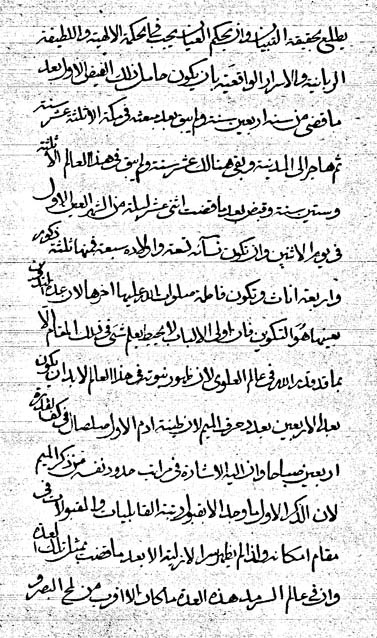 يطلع بحقيقة التبيان وان يحكم العيان يجب في الحكمة الالهية واللطيفة
الربانية والاسرار الواقعية بان يكون حامل ذلك الفيض الاول بعد
ما قضى من سنه اربعين سنة ولم يبق بعد بعثه في مكة الا ثلثة عشر سنة
ثم هاجر الى المدينة وبقي هنالك عشر سنة ولم يبق في هذا العالم الا ثلثة
وستين سنة وقبض بعد ما قضت اثنى عشر ليلة من الشهر الاول
في يوم الاثنين وان يكون نسائه تسعة واولاده سبعة فمنها ثلثة ذكور
واربعة اناث وتكون فاطمة صلوات الله عليها اخرها لان
بعينها هو التكوين فان اولى الالباب لا يحيط بعلم شئ في ذلك المقام الا
بما قدر الله في عالم العلوى لان ظهور نبوته في هذا العالم لابد ان يكون
بعد الاربعين بعدد حرف الميم لان طينة ادم الاول صلصال في كف القدرة
اربعين صباحا وان اليه الاشارة في مراتب حدود نفسه من ذكر الميم
لان الذكر الاول ما وجد الا بظهور رتبة القابليات والمقبولات في
مقام امكانه ولذا لم يظهر سر الازلية الا بعد ما قضت بمثل تلك العدة
وان في عالم السرمد هذه العدة ما كان الا اقرب من لمح البصر و